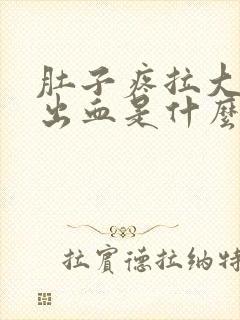 肚子疼拉大
出血是什麼
拉賓德拉納特